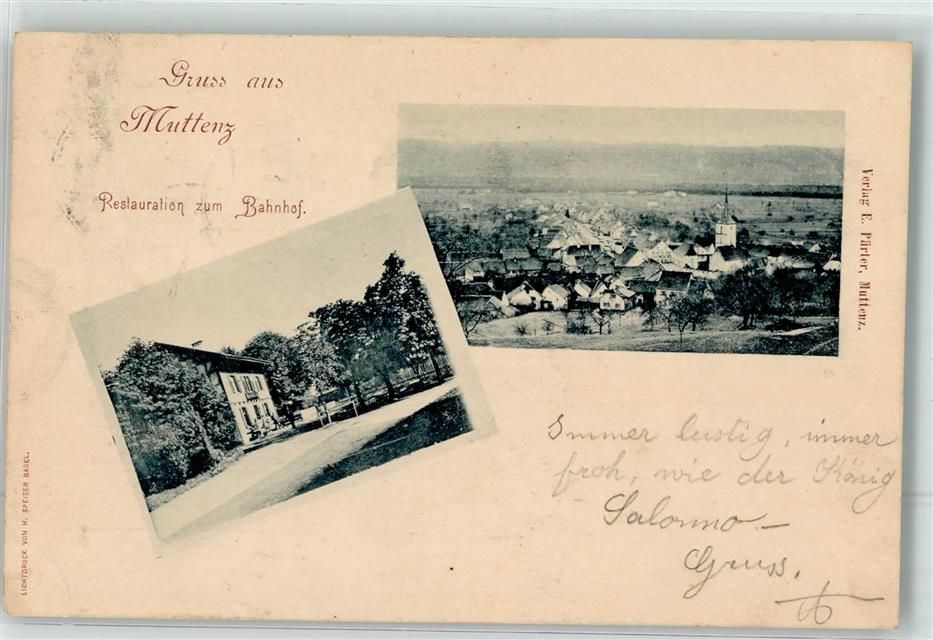 Gruss aus
Muttenz
Restauration zum Bahnhof.
Verlag E. Pärter, Muttenz.
LICHTDRUCK VON H. SPEISER BASEL.
Immer lustig, immer
froh, wie der König
Salomo –
Gruss.